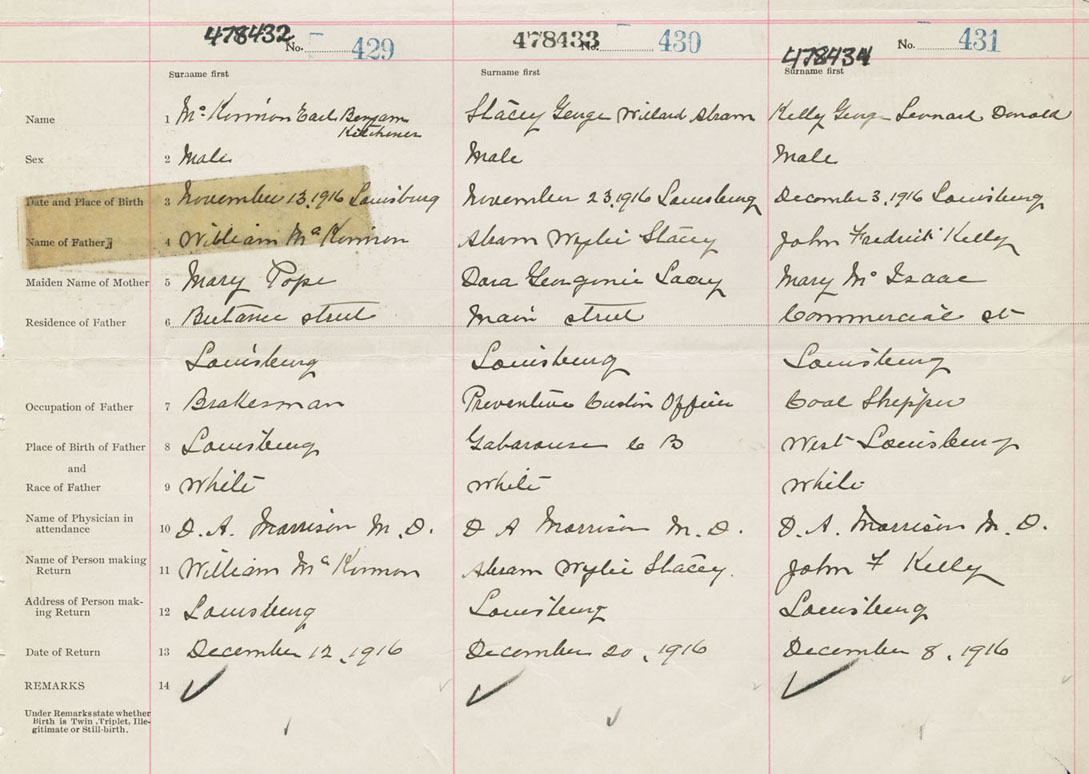 478432 No. 429 478433 No. 430 478434 No. 431
Surname first Surname first Surname first
Name 1 Mc Kinnon Earl Benjam Stacey George Willard Abram Kelly George Leonard Donald
Kitchener
Sex 2 Male Male Male
Date and Place of Birth 3 November 13, 1916 Louisburg November 23, 1916 Louisburg December 3, 1916 Louisburg
Name of Father 4 William Mc Kinnon Abram Wylie Stacey John Fredrick Kelly
Maiden Name of Mother 5 Mary Pope Dora Georgonie Lacey Mary Mc Isaac
Residence of Father 6 street Main street Commercial st
Louisburg Louisburg Louisburg
Occupation of Father 7 Brakesman Preventive Custom Officer Coal Shipper
Place of Birth of Father 8 Louisburg Gabarouse C B West Louisburg
and
Race of Father 9 White White White
Name of Physician in
attendance 10 D. A. Morrison M. D. D A Morrison M. D. D. A. Morrison M. D.
Name of Person making
Return 11 William Mc Kinnon Abram Wylie Stacey. John F Kelly
Address of Person mak-
ing Return 12 Louisburg Louisburg Louisburg
Date of Return 13 December 12, 1916 December 20, 1916 December 8, 1916
REMARKS 14
Under Remarks state whether
Birth is Twin, Triplet, Ille-
gitimate or Still-birth.